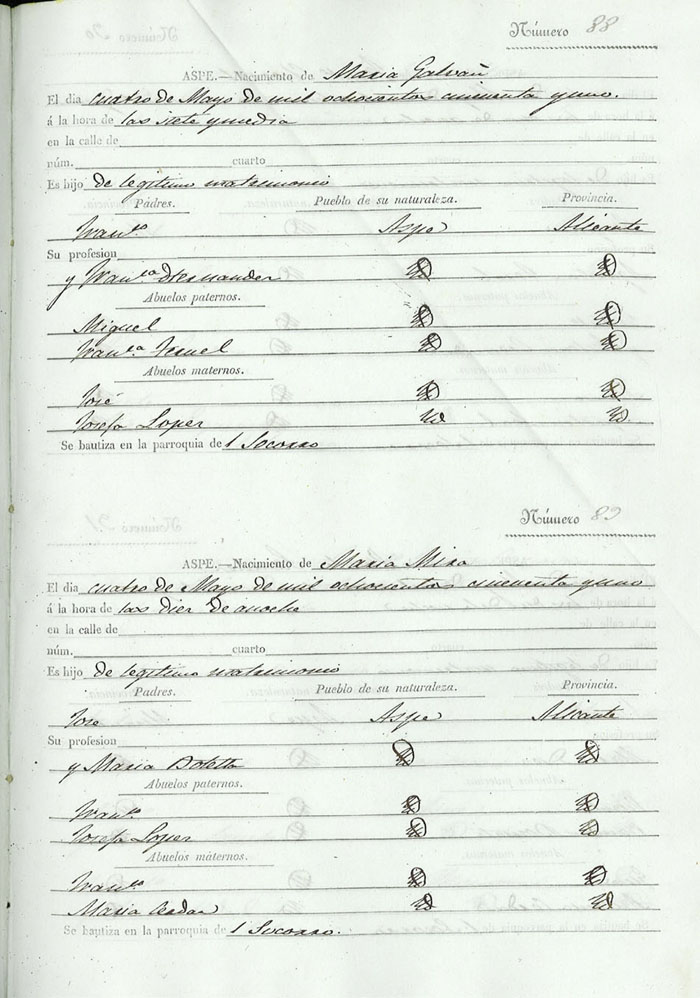 Número 88
ASPE.—Nacimiento de Maria Galvañ
El dia cuatro de Mayo de mil ochocientos cincuenta y uno.
á la hora de las siete y media
en la calle de
núm. cuarto
Es hijo de legitimo matrimonio
Padres. Pueblo de su naturaleza. Provincia.
Fran.co Aspe Alicante
Su profesion
y Fran.ca Hernandez id id
Abuelos paternos.
Miguel id id
Fran.ca id id
Abuelos maternos.
José id id
Josefa Lopez id id
Se bautiza en la parroquia de l Socorro
Número 89
ASPE.—Nacimiento de Maria Mira
El dia cuatro de Mayo de mil ochocientos cincuenta y uno
á la hora de las diez de anoche
en la calle de
núm. cuarto
Es hijo de legitimo matrimonio
Padres. Pueblo de su naturaleza. Provincia.
Jose Aspe Alicante
Su profesion
y Maria Botella id id
Abuelos paternos.
Fran.co id id
Josefa Lopez id id
Abuelos maternos.
Fran.co id id
Maria id id
Se bautiza en la parroquia de l Socorro.